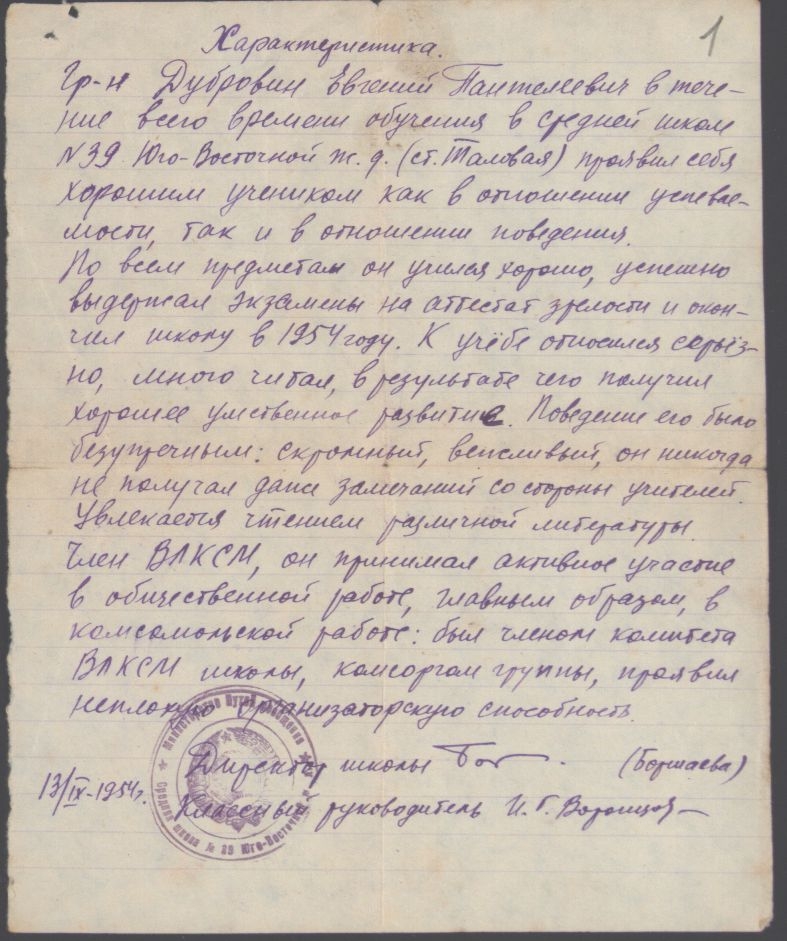 1
Характеристика.
Гр-н Дубровин Евгений Пантелеевич в тече-
ние всего времени обучения в средней школе
№39 Юго-Восточной ж.д. (ст. Таловая) проявил себя
хорошим учеником как в отношении успевае-
мости, так и в отношении поведения.
По всем предметам он учился хорошо, успешно
выдержал экзамены на аттестат зрелости и окон-
чил школу в 1954 году. К учёбе относился серьёз-
но, много читал, в результате чего получил
хорошее умственное развитие. Поведение его было
безупречным: скромный, вежливый, он никогда
не получал даже замечаний со стороны учителей.
Увлекается чтением различной литературы.
Член ВЛКСМ, он принимал активное участие
в общественной работе, главным образом, в
комсомольской работе: был членом комитета
ВЛКСМ школы, комсоргом группы, проявил
неплохую организаторскую способность.
Директор школы (Боршаева)
13/IX-1954г.
Классный руководитель И.Г. Воронцов
Министерство Путей Сообщения
Средняя школа № 39 Юго-Восточной ж.